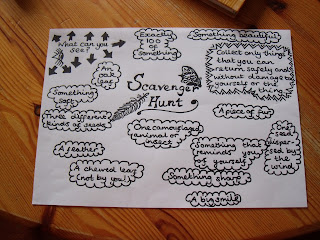 What can you
see?
Exactly
100
of
Something
Something beautiful
Collect only things
that you can
return safely and
without damage to
yourself or the
thing.
An
oak
leaf
Scavenger
Hunt
Something
soft
Three different
kinds of seeds
A piece of fur
One camouflaged
animal or
insect
One
seed
disper-
sed by
the
wind
Something that
reminds you
of yourself
A feather
A chewed leaf
(not by you!)
Something sharp
A big smile